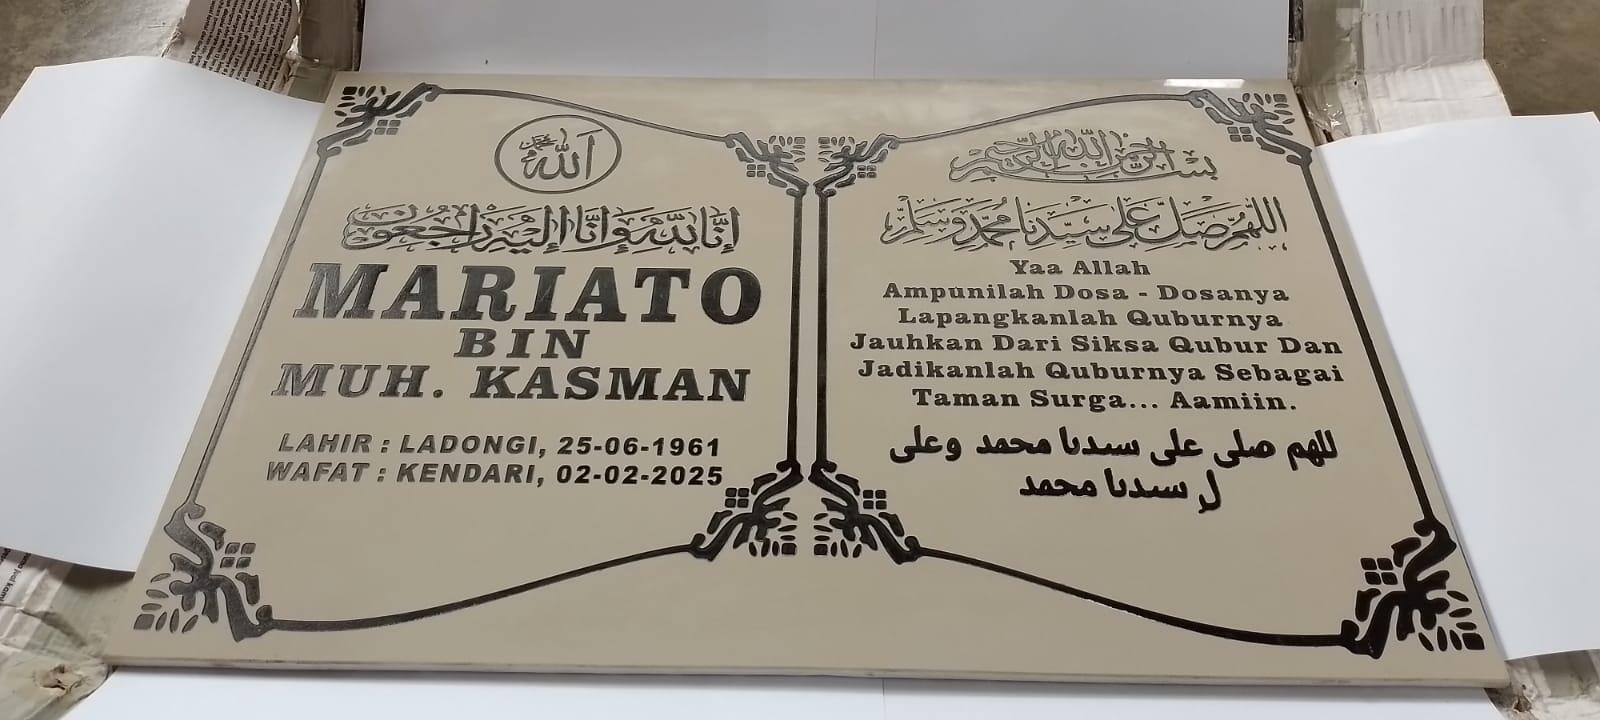 الله محمد
إنا لله وإنا إليه راجعون
MARIATO
BIN
MUH. KASMAN
LAHIR : LADONGI, 25-06-1961
WAFAT : KENDARI, 02-02-2025
بسم الله الرحمن الرحيم
اللهم صل على سيدنا محمد وسلم
Yaa Allah
Ampunilah Dosa - Dosanya
Lapangkanlah Quburnya
Jauhkan Dari Siksa Qubur Dan
Jadikanlah Quburnya Sebagai
Taman Surga... Aamiin.
للهم صلى على سيدنا محمد وعلى
ل سيدنا محمد